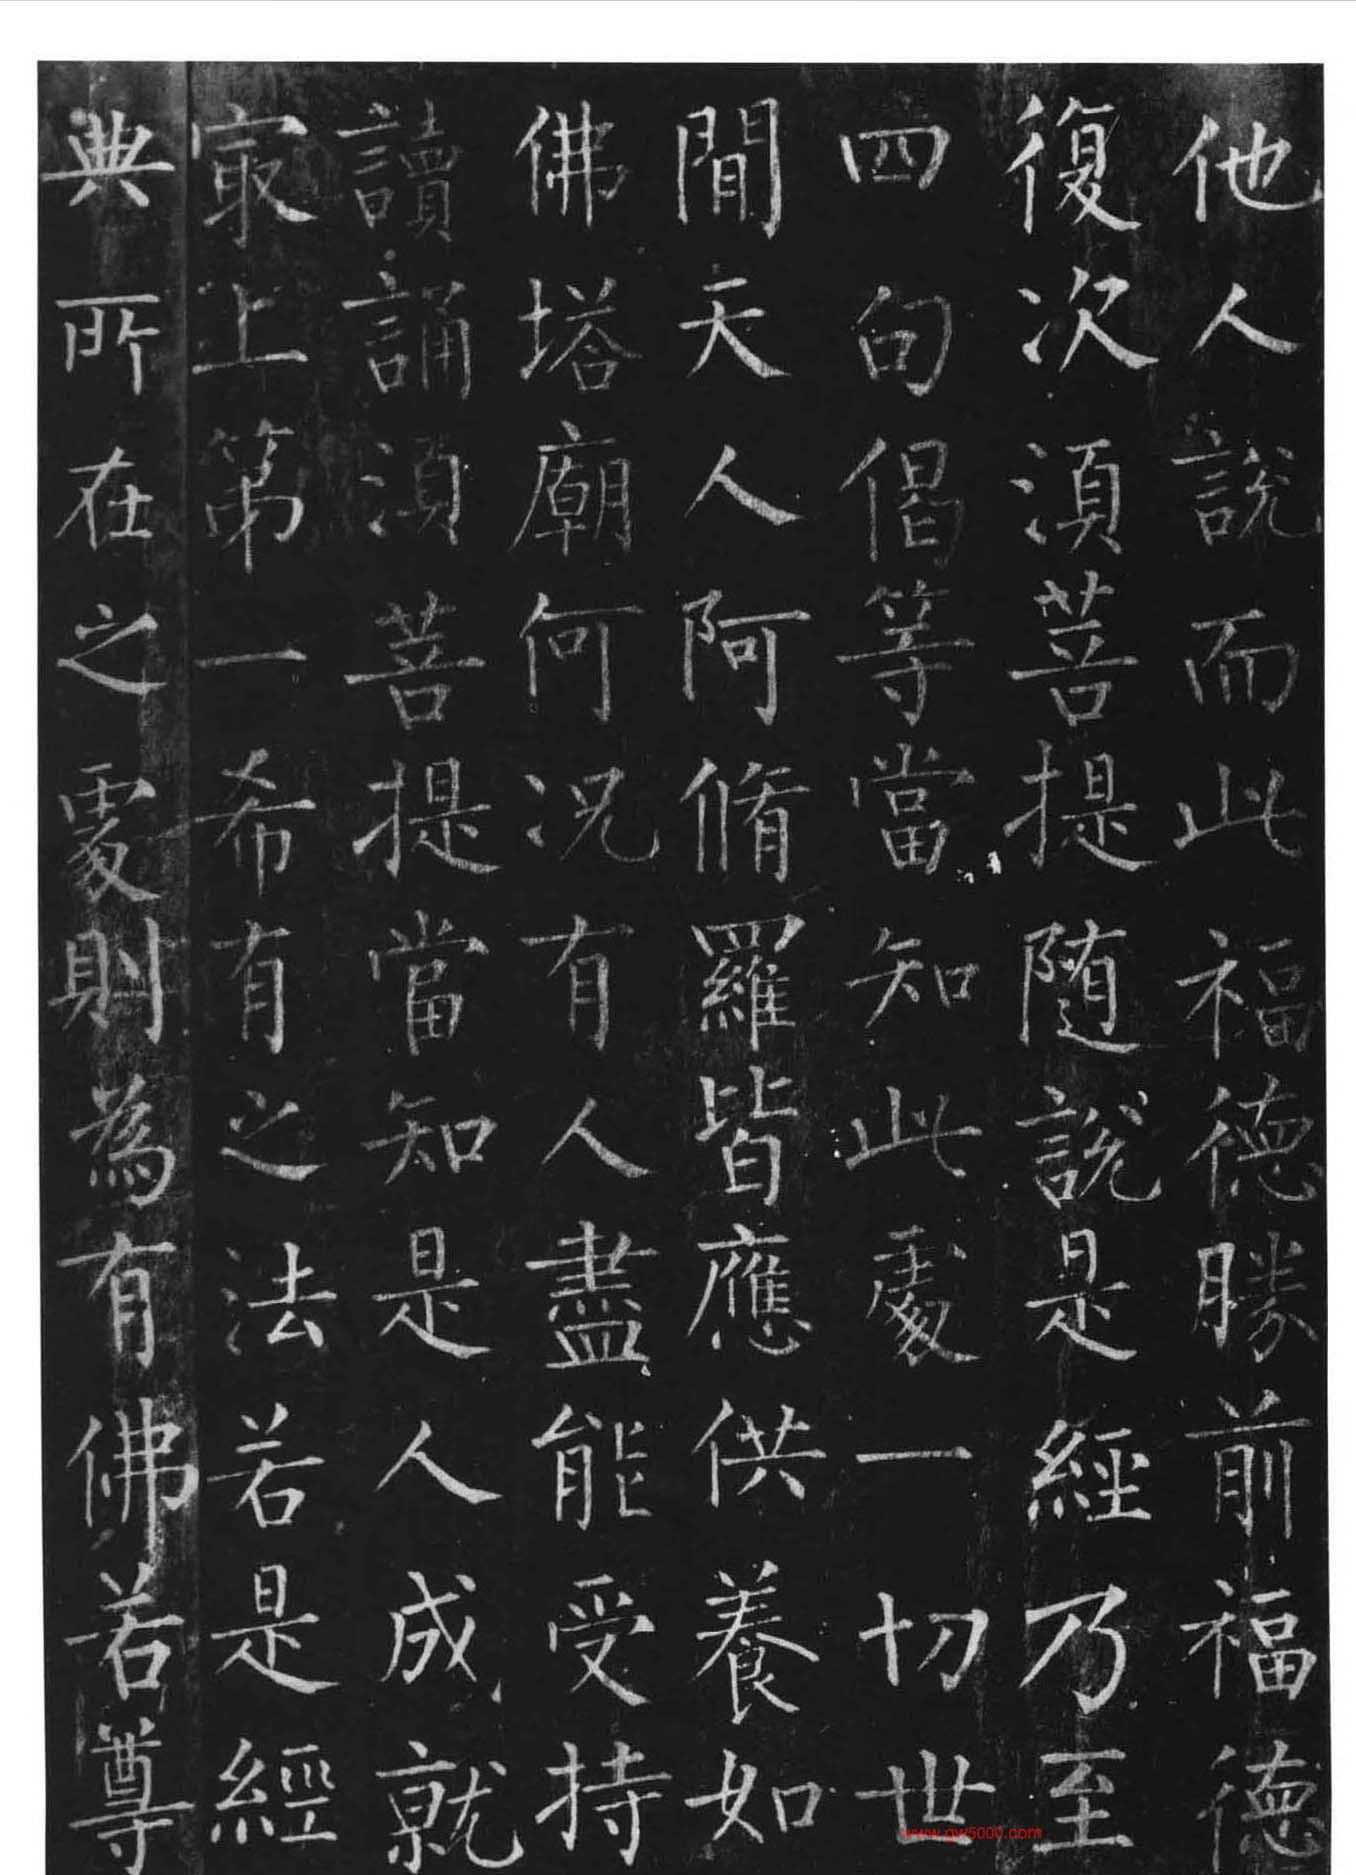 他人説而此福德勝前福德
復次湏菩提随説是經乃至
四句偈等當知此處一切世
間天人阿脩羅皆應供養如
佛塔廟何况有人盡能受持
讀誦湏菩提當知是人成就
冣上第一希有之法若是經
典所在之處則為有佛若尊
www.gw5000.com